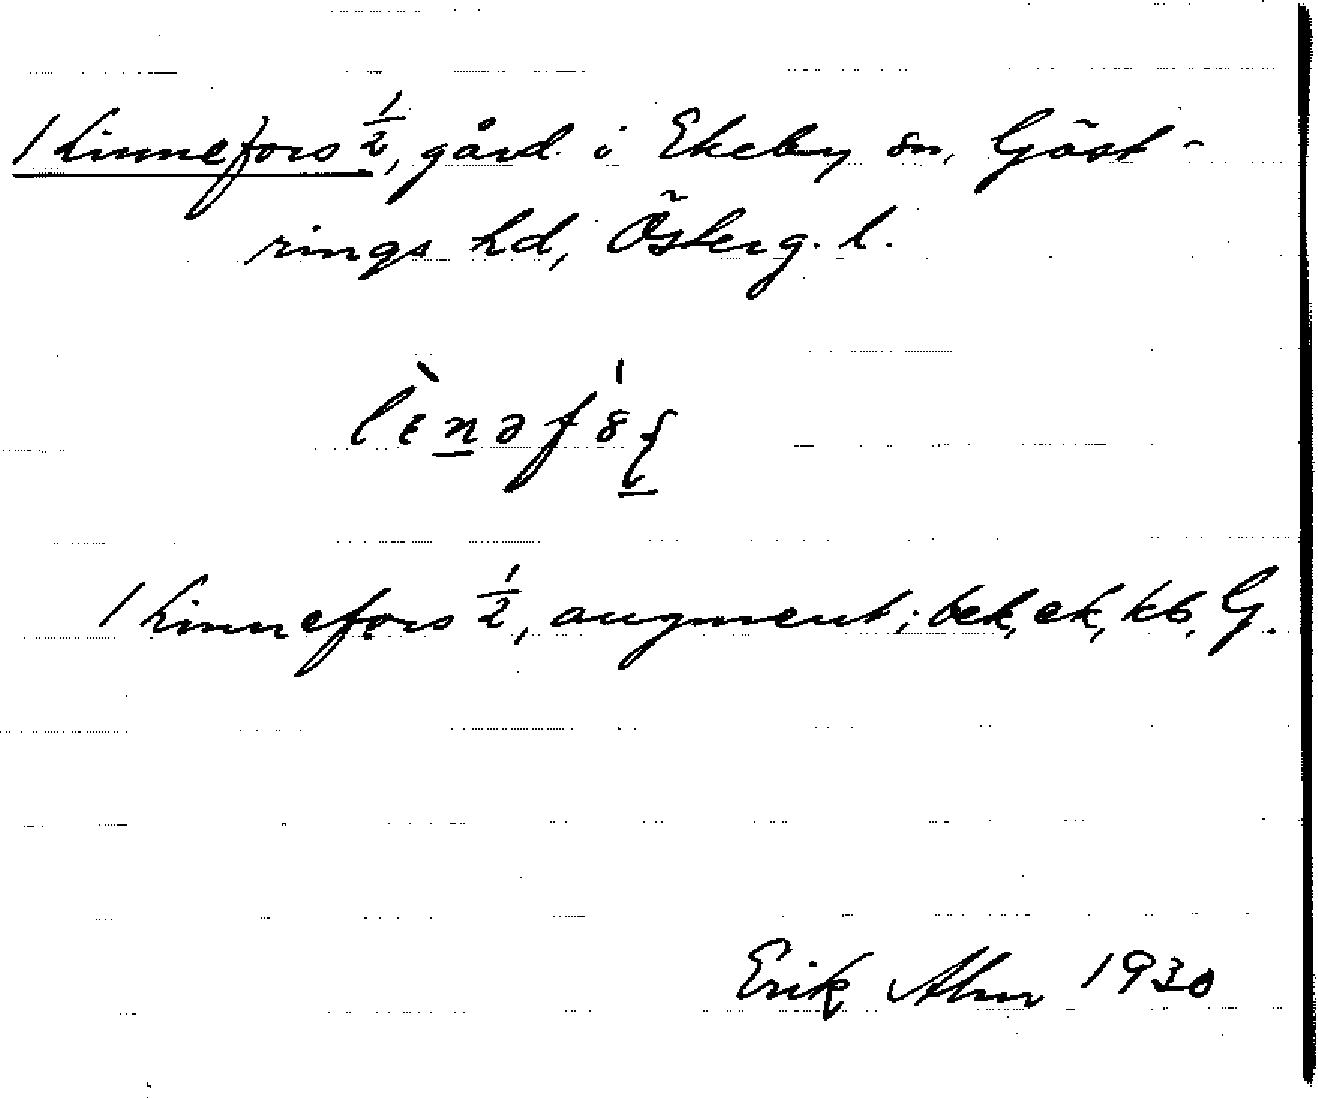 1 Linnefors ½, gård i Ekeby sn, Göst-
rings hd, Österg. l.
lènəfȯʂ
1 Linnefors ½, augment; bek, ek, kb, G.
Erik Alm 1930